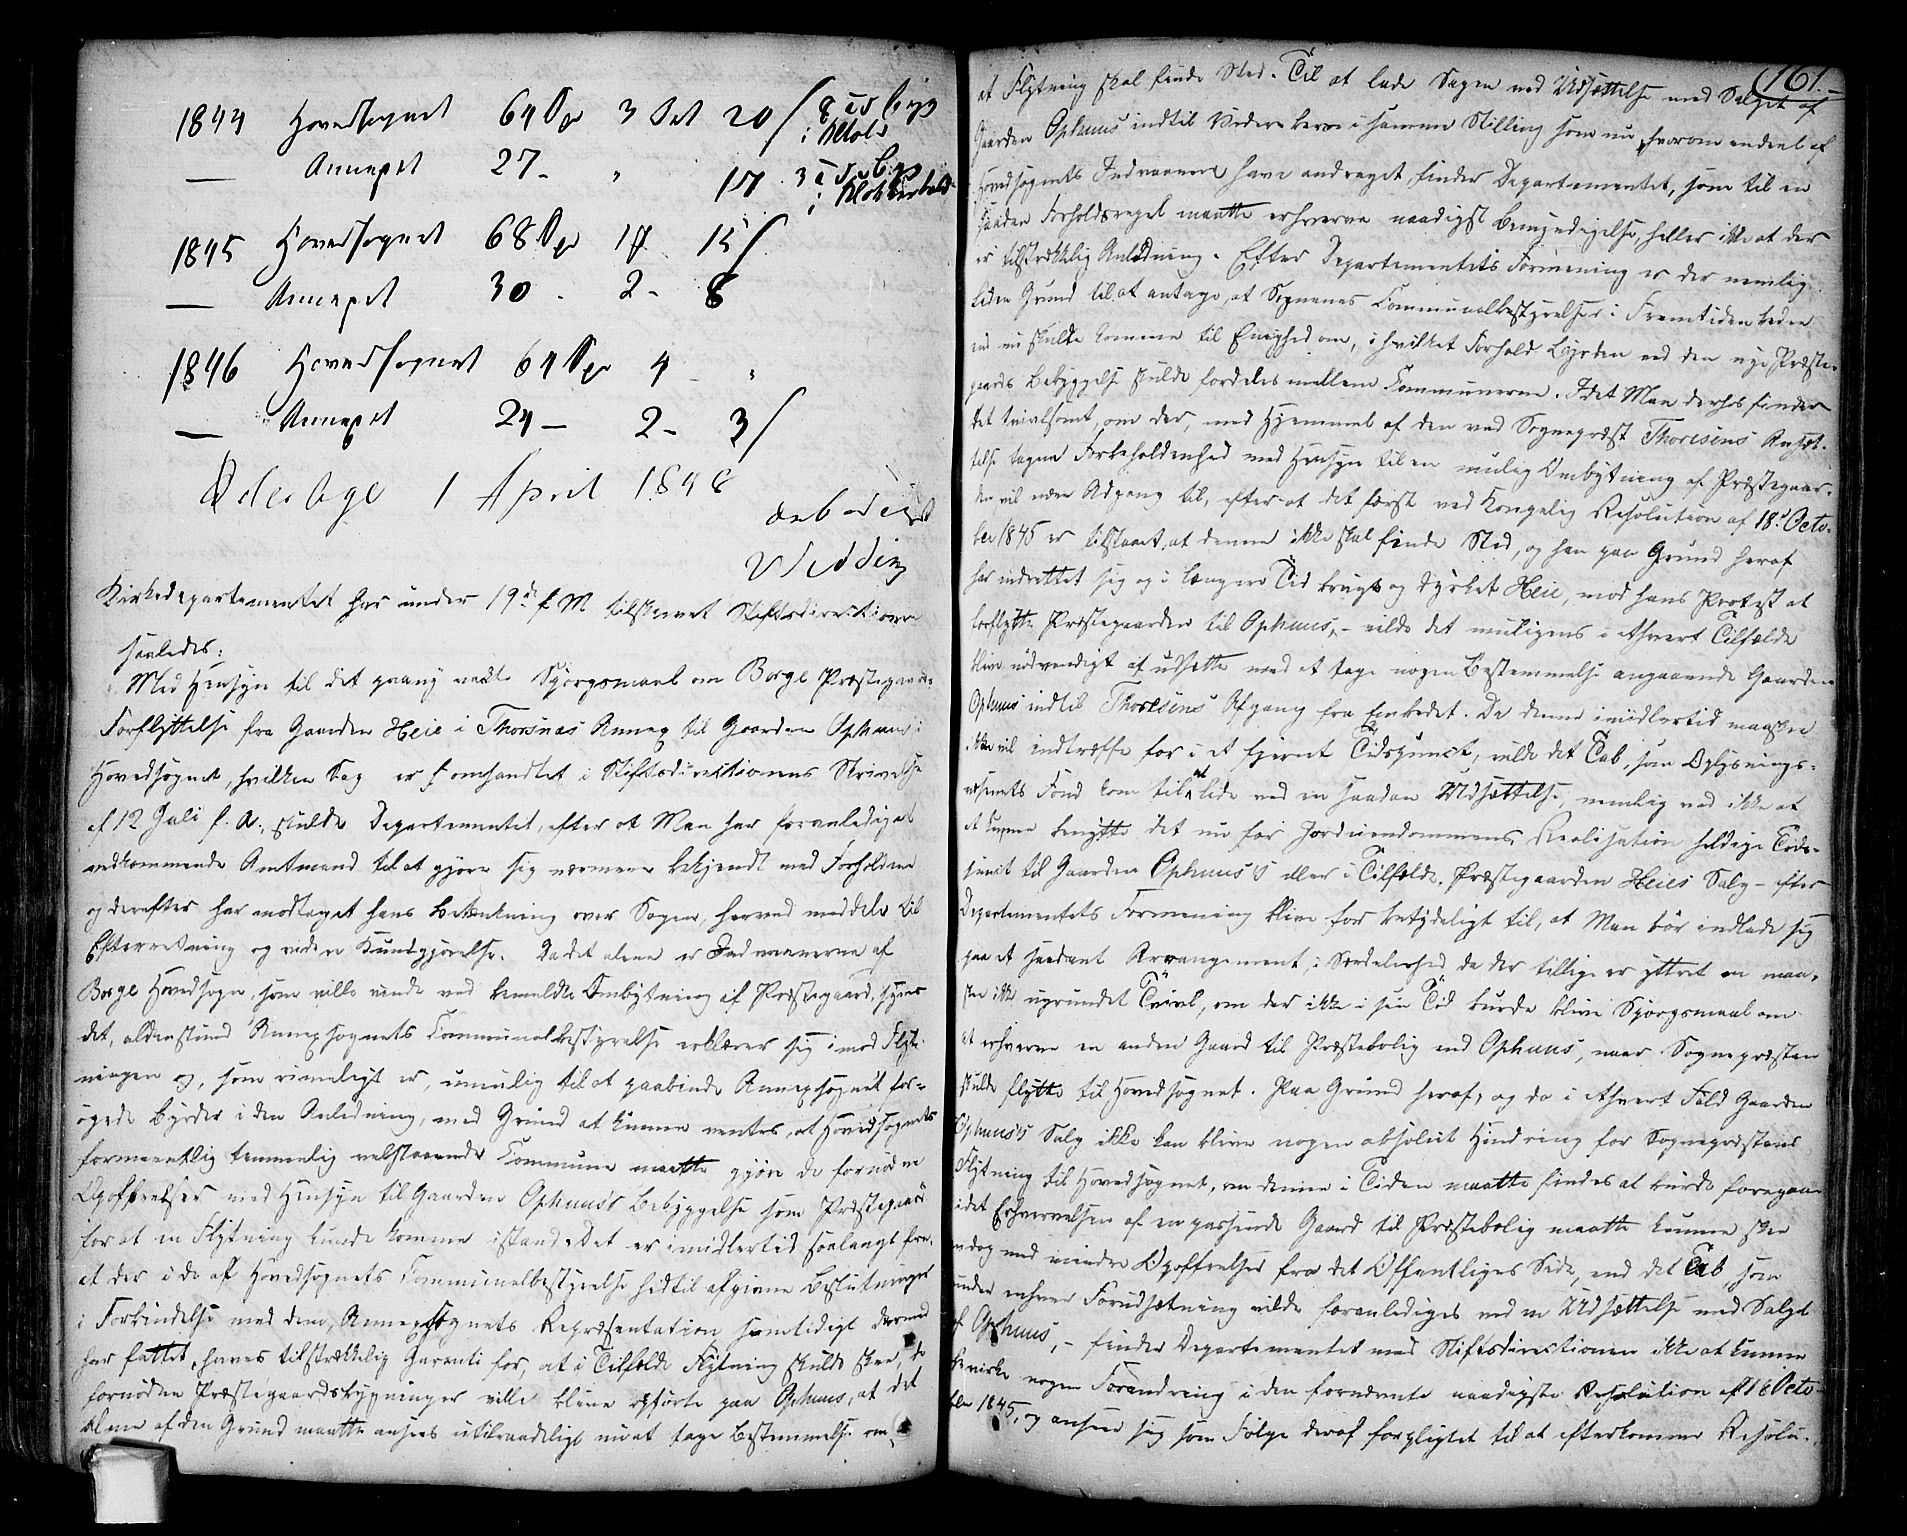 1844 Hovedsognet 64 Spr 3 Ort 20 / 8
— Annexet 27 - " 17 3
1845 Hovedsognet 68 Spr 1 15 /
— Annexet 30 - 2 - 8
1846 Hovedsognet 64 Spr 4 - "
— Annexet 24 — 2 - 3 /
1 April 1848
Wedding
Kirkedepartementet har under 19de f. M. tilskrevet Stiftsdirectionen
saaledes:
"Med Hensyn til det paany vakte Spörgsmaal om Borge Præstegaards
Forflyttelse fra Gaarden Heie i Thorsnæs Annex til Gaarden Ophuus i
Hovedsognet, hvilken Sag er omhandlet i Stiftsdirektionens Skrivelse
af 12 Juli f. A., skulde Departementet, efter at Man har foranlediget
vedkommende Amtmand til at gjöre sig nærmere bekjendt med Forholdene
og derefter har modtaget hans Betænkning over Sagen, herved meddele til
Efterretning og videre Kundgjörelse: Da det alene er Indvaanerne af
Borge Hovedsogn, som ville vinde ved bemeldte Ombytning af Præstegaard, synes
det, aldenstund Annexsognets Communalbestyrelse erklærer sig imod Flyt-
ningen og, som rimeligt er, umulig til at paabinde Annexsognet for-
ögede Byrder i den Anledning, med Grund at kunne ventes, at Hovedsognets
formeentlig temmelig velstaaende Commune maatte gjöre de fornödne
Opoffrelser med Hensyn til Gaarden Ophuus's Bebyggelse som Præstegaard
for at en Flytning kunde komme istand. Det er imidlertid saalangt fra,
at der i de af Hovedsognets Communalbestyrelse hidtil afgivne Beslutninger
i Forbindelse med dem, Annexsognets Repræsentation samtidigt dermed
har fattet, haves tilstrækkelig Garanti for, at i Tilfælde Flytning skulde skee, de
fornödne Præstegaardsbygninger ville blive opförte paa Ophuus, at det
alene af den Grund maatte ansees utilraadeligt nu at tage Bestemmelse om,
161.
at Flytning skal finde Sted. Til at lade Sagen ved Udsættelse med Salget af
Gaarden Ophuus indtil Videre beroe i samme Stilling som nu, hvorom endeel af
Hovedsognets Indvaanere have andraget, finder Departementet, som til en
saadan Forholdsregel maatte erhverve naadigst Bemyndigelse, heller ikke at der
er tilstrækkelig Anledning. Efter Departementets Formening er der nemlig
liden Grund til at antage, at Sognenes Communalbestyrelser i Fremtiden bedre
end nu skulde komme til Enighed om, i hvilket Forhold Byrden ved den nye Præste-
gaards Bebyggelse skulde fordeles mellem Communerne. Idet Man derhos finder
det tvivlsomt, om der, med Hjemmel af den ved Sognepræst Thoresens Ansæt-
telse tagne Forbeholdenhed med Hensyn til en mulig Ombytning af Præstegaar-
den vil være Adgang til, efter at det först ved Kongelig Resolution af 18de Octo-
ber 1845 er tilstaaet, at denne ikke skal finde Sted, og han paa Grund heraf
har indrettet sig og i længere Tid brugt og dyrket Heie, mod hans Protest at
forflytte Præstegaarden til Ophuus, - vilde det muligens i ethvert Tilfælde
blive nödvendigt at udsætte med at tage nogen Bestemmelse angaaende Gaarden
Ophuus indtil Thoresens Afgang fra Embedet. Da denne imidlertid maaskee
ikke vil indtræffe för i et fjernt Tidspunct, vilde det Tab, som Oplysnings-
væsenets Fond kom til at lide ved en saadan Udsættelse, nemlig ved ikke at
at kunne benytte det nu for Jordeiendommens Realisation heldige Tids-
punct til Gaarden Ophuus's eller i Tilfælde, Præstegaarden Heies Salg - efter
Departementets Formening blive for betydeligt til, at Man bör indlade sig
paa et saadant Arrangement, i Særdeleshed, da der tillige er yttret en maa-
skee ikke ugrundet Tvivl, om der ikke i sin Tid burde blive Spörgsmaal om
at erhverve en anden Gaard til Præstebolig end Ophuus, naar Sognepræsten
skulde flytte til Hovedsognet. Paa Grund heraf, og da i ethvert Fald Gaarden
Ophuus's Salg ikke kan blive nogen absolut Hindring for Sognepræstens
Flytning til Hovedsognet, om denne i Tiden maatte findes at burde foregaae
idet Erhvervelsen af en passende Gaard til Præstebolig maatte kunne skee
endog med mindre Opoffrelser fra det Offentliges Side, end det Tab, som
under enhver Forudsætning vilde foranlediges ved en Udsættelse med Salget
af Ophuus, - finder Departementet med Stiftsdirectionen ikke at kunne
bevirke nogen Forandring i den fornævnte naadigste Resolution af 18 Octo-
ber 1845, og anseer sig som Fölge deraf forpligtet til at efterkomme Resolu-